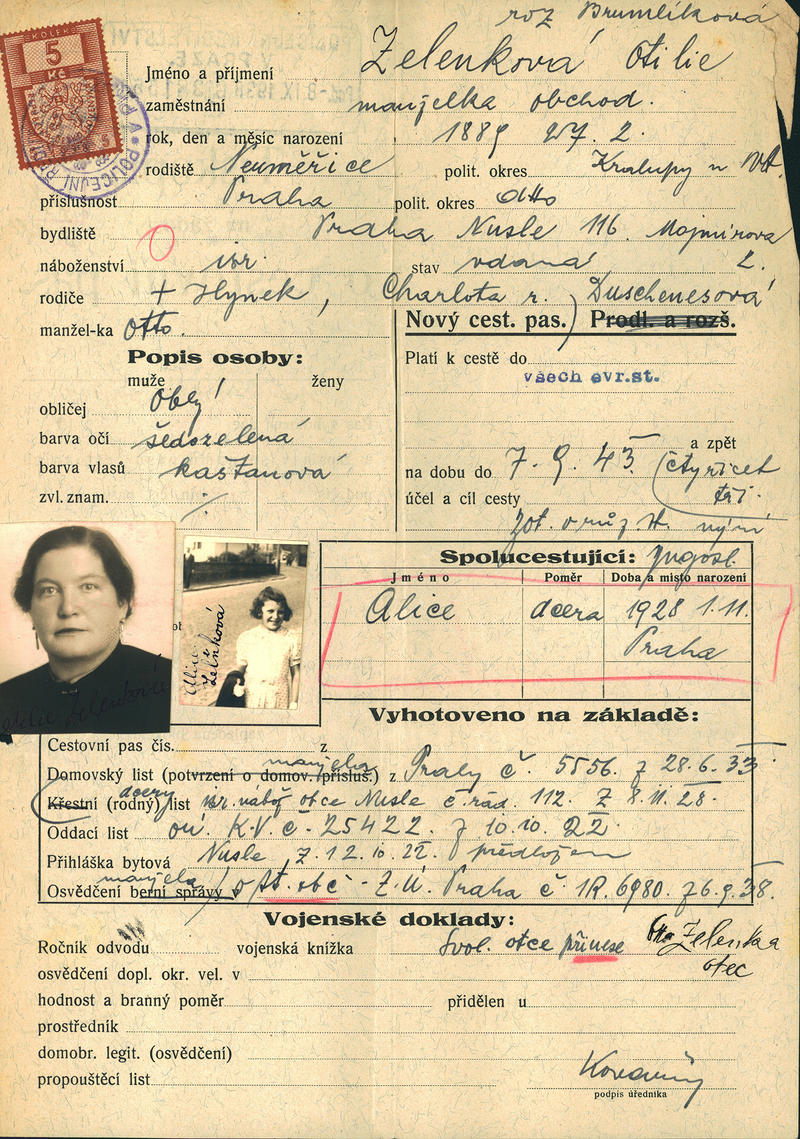 roz Brumlíková
KOLEK
5
Kč
POLICEJNÍ
Jméno a příjmení Zelenková Otilie
zaměstnání manželka obchod.
rok, den a měsíc narození 1889 27. 2.
rodiště Neuměřice polit. okres Kralupy n Vlt.
příslušnost Praha polit. okres dtto
bydliště Praha Nusle 116. Mojmírova
náboženství isr. stav vdaná 2.
rodiče + Hynek, Charlota r. Duschenesová
manžel-ka Otto.
Nový cest. pas. Prodl. a rozš.
Popis osoby:
muže ženy
obličej Oblý
barva očí šedozelená
barva vlasů kaštanová
zvl. znam.
Platí k cestě do
všech evr.st.
a zpět
na dobu do 7. 9. 43. (čtyřicet
tři.
účel a cíl cesty
Jugosl.
Spolucestující:
Jméno Poměr Doba a místo narození
Alice dcera 1928 1.11.
Praha
Alice
Zelenková
Otilie Zelenková
Vyhotoveno na základě:
Cestovní pas čís. z
manžela
Domovský list (potvrzení o domov. přísluš.) z Prahy č. 5556. z 28.6.33
dcery
Křestní (rodný) list isr. nábož. obce Nusle č. řád. 112. z 8.11.28.
Oddací list K.V. č. 25422. z 10.10.22
Přihláška bytová Nusle, z. 12.10.22. předložen
manžela
Osvědčení berní správy v st. obč. - Z.Ú. Praha č. 1R.6980. z 6.9.38.
Vojenské doklady:
Ročník odvodu vojenská knížka Svol. otce přinese Otto Zelenka
otec
osvědčení dopl. okr. vel. v
hodnost a branný poměr přidělen u
prostředník
domobr. legit. (osvědčení)
propouštěcí list
podpis úředníka